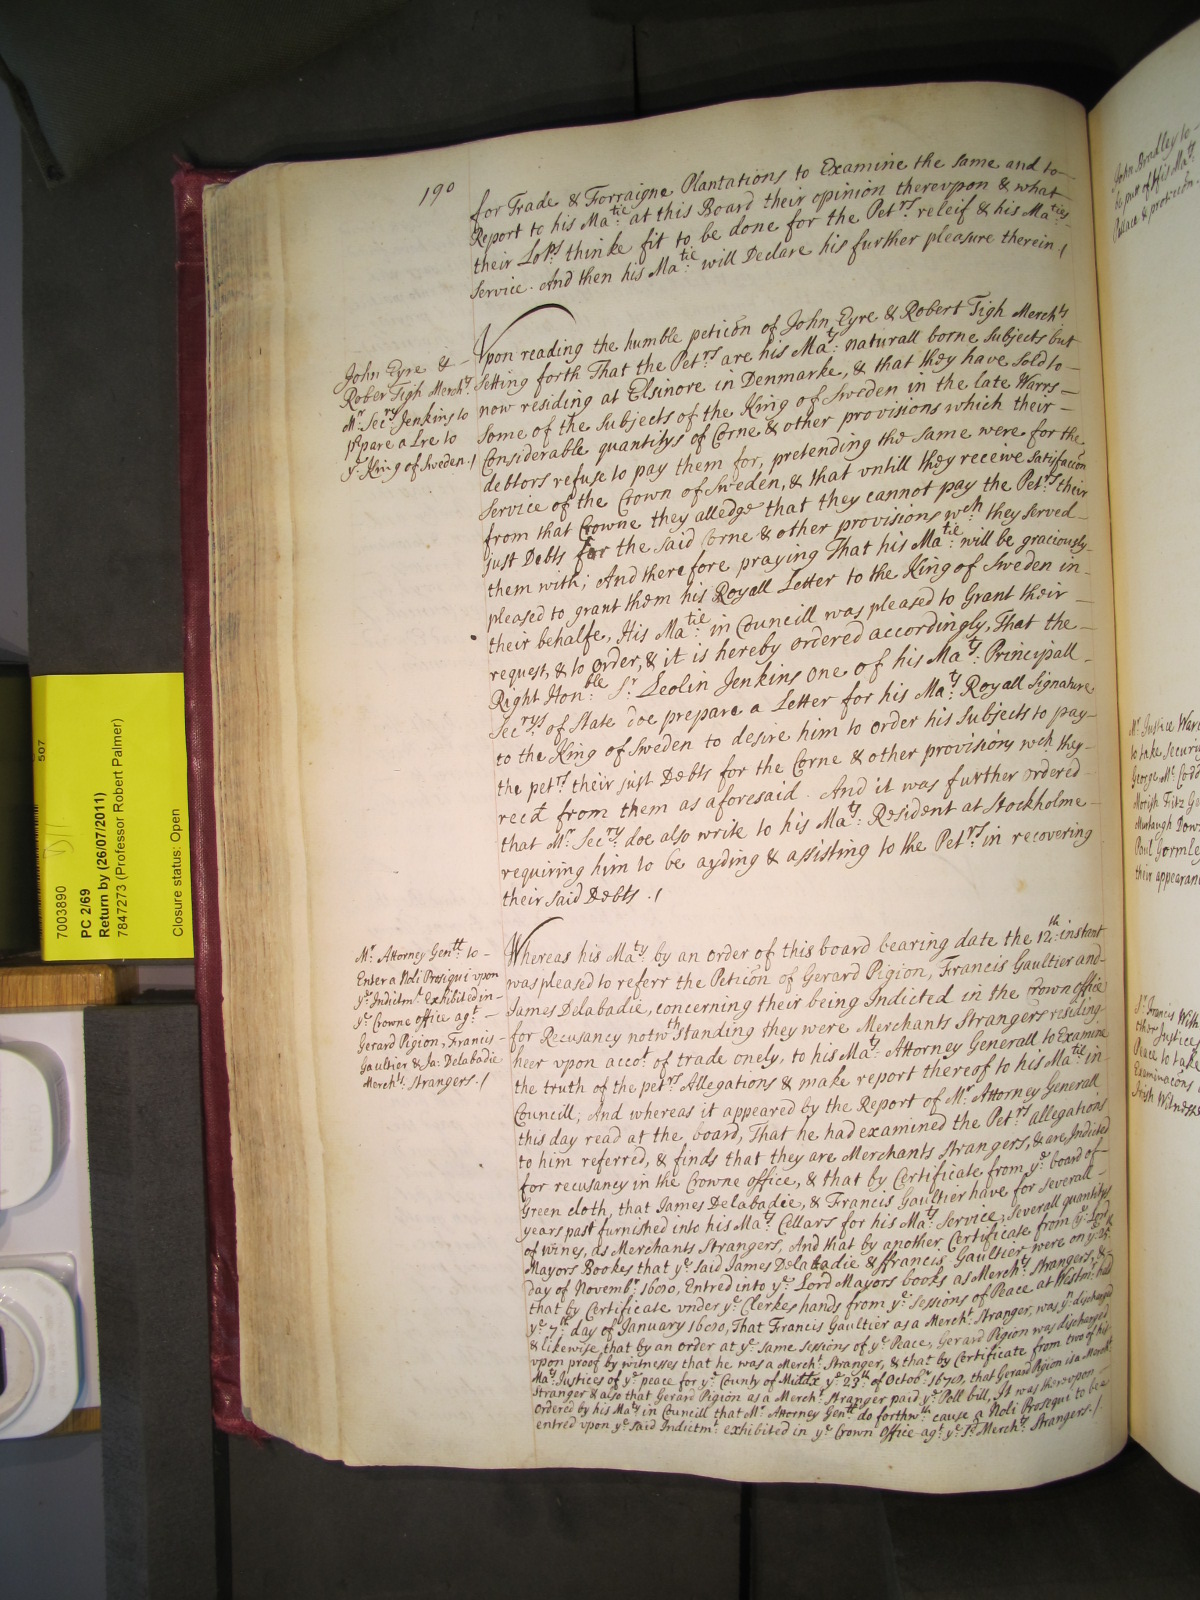 190
for Trade & Forraigne Plantations to Examine the same and to
Report to his Ma:tie at this Board their opinion thereupon & what
their Lo:ps thinke fit to be done for the Pet:rs releif & his Ma:ties
Service. And then his Ma:tie will Declare his further pleasure therein /
John Eyre & –
Rober Tigh Merch:ts
Mr. Secry Jenkins to
p'pare a Lre to
ye King of Sweden./
Vpon reading the humble peticõn of John Eyre & Robert Tigh Merchts
Setting forth That the Pet:rs are his Ma:ty naturall borne Subjects but
now residing at Elsinore in Denmarke, & that they have sold to –
Some of the Subjects of the King of Sweden in the late Warrs –
Considerable quantitys of Corne & other provisions which their –
debtors refuse to pay them for, pretending the same were for the
Service of the Crown of Sweden, & that vntill they receive satisfaccõn
from that Crowne they alledge that they cannot pay the Pet:rs their
just Debts for the said Corne & other provisions wch they served –
them with; And therefore praying That his Ma:tie will be graciously
pleased to grant them his Royall Letter to the King of Sweden in –
their behalfe, His Ma:tie in Councill was pleased to Grant their –
request, & to order, & it is hereby ordered accordingly, That the –
Right Hon:ble Sr. Leolin Jenkins one of his Ma:ty Principall –
Secrys of State doe prepare a Letter for his Ma:ty Royall Signature
to the King of Sweden to desire him to order his Subjects to pay –
the petrs their just Debts for the Corne & other provisions wch they –
recd from them as aforesaid. And it was further ordered –
that Mr. Secry doe also write to his Ma:ty Resident at Stockholme –
requiring him to be ayding & assisting to the Pet:rs in recovering
their said Debts ./
Mr. Attorney Gen:ll to –
Enter a Noli Prosequi vpon
ye Indictmt Exhibited in –
ye Crowne office agt –
Gerard Pigion, Francis –
Gaultier & Ja: Delabadie
Merch:ts Strangers./
Whereas his Ma:ty by an order of this board bearing date the 12th instant
was pleased to referr the Peticõn of Gerard Pigion, Francis Gaultier and –
James Delabadie, concerning their being Indicted in the Crown office
for Recusancy notwthstanding they were Merchants Strangers residing
heer vpon accot of trade onely, to his Ma:ty Attorney Generall to Examine
the truth of the petrs Allegations & make report thereof to his Ma:tie in –
Councill; And whereas it appeared by the Report of Mr. Attorney Generall
this day read at the board, That he had examined the Pet:rs allegations
to him referred, & finds that they are Merchants Strangers, & are Indicted
for recusancy in the Crowne office, & that by Certificate from ye board of –
Green cloth, that James Delabadie, & Francis Gaultier have for severall –
years past furnished into his Ma:ty Cellars for his Ma:ty Service, severall quantitys
of wines, as Merchants Strangers, And that by another Certificate from ye Lord
Mayors Bookes that ye said James Delabadie & ffrancis Gaultier were on ye 25th
day of Novembr: 1680, Entred into ye Lord Mayors books as Mercht Strangers, & –
that by Certificate vnder ye Clerkes hands from ye Sessions of Peace at Westmr had
ye 7th day of January 1680, That Francis Gaultier as a Mercht Stranger, was yn discharged
& likewise that by an order at ye same Sessions of ye Peace, Gerard Pigion was discharged
vpon proof by witnesses that he was a Mercht Stranger, & that by Certificate from two of his
Ma:ty Justices of ye peace for ye County of Middx ye 23th of Octobr 1678, that Gerard Pigion is a Mercht
Stranger & also that Gerard Pigion as a Mercht Stranger paid ye Poll bill, It was thereupon –
Ordered by his Ma:ty in Councill that Mr. Attorney Gen:ll do forthwth cause a Noli Prosequi to be
entred vpon ye said Indictmt exhibited in ye Crown Office agt ye sd Mercht Strangers./
John Bradley to
be put of His Ma:ty
Mr. Justice
to take Securi
George Mc
Morish Fitz
Murtaugh
Paul Gorml
their appearan
Sr. Francis With
other Justices
Peace to take
Examinacõns
Irish Witnesse
507
7003890
PC 2/69
Return by (26/07/2011)
7847273 (Professor Robert Palmer)
Closure status: Open